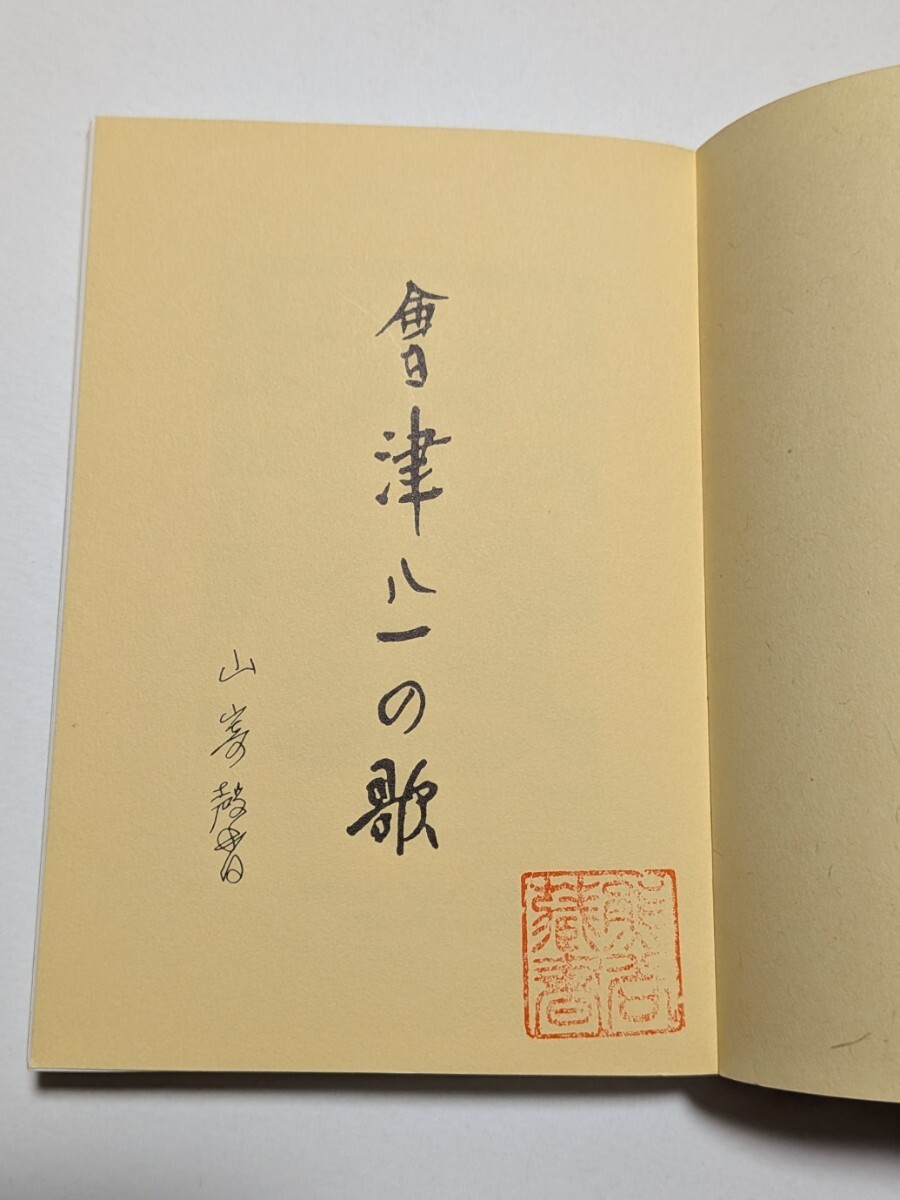 會津八一の歌
山嵜馨書
藏書